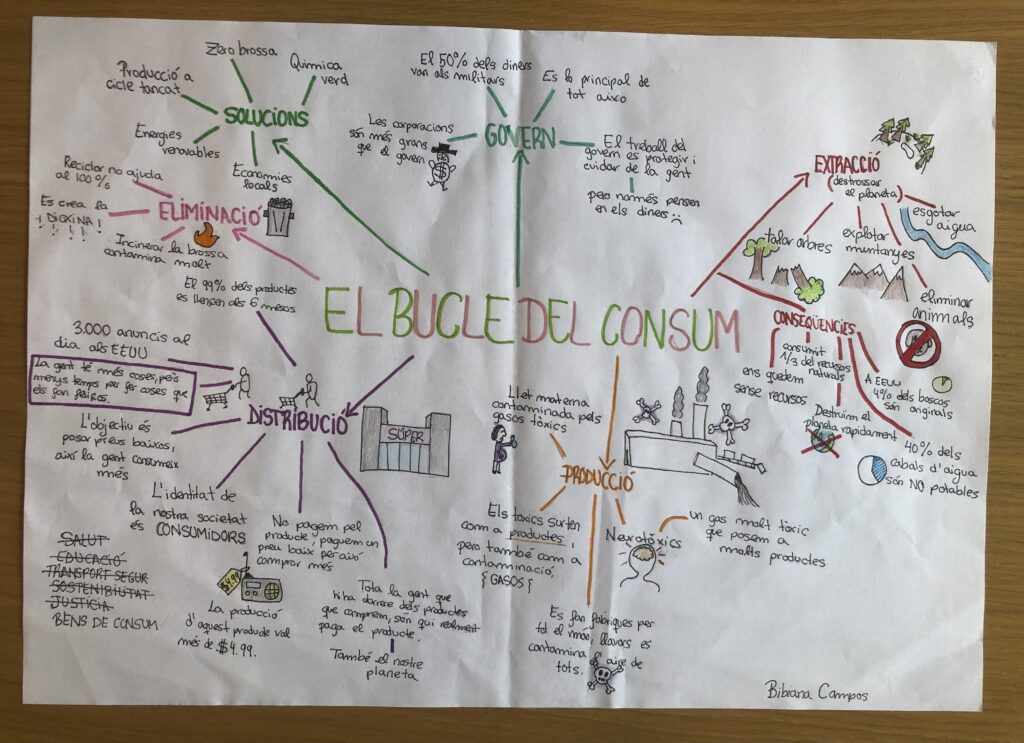 Zero brossa
Química
verd
Producció a
cicle tancat
SOLUCIONS
Energies
renovables
Economies
locals
El 50% dels diners
van als militars
Es la principal de
tot aixo
Les corporacions
són més grans
que el govern
GOVERN
$
El treball del
govern es protegir i
cuidar de la gent
pero només pensen
en els diners
EXTRACCIÓ
(destrossar
el planeta)
talar arbres
explotar
muntanyes
esgotar
aigua
eliminar
animals
Reciclar no ajuda
al 100%
Es crea la
¡DIOXINA!
ELIMINACIÓ
Incinerar la brossa
contamina molt
EL BUCLE DEL CONSUM
CONSEQÜÈNCIES
ens quedem
sense recursos
consumit
1/3 del recursos
naturals
Destruim el
planeta rapidament
A EEUU
4% dels boscos
són originals
40% dels
cabals d'aigua
són NO potables
El 99% dels productes
es llençen als 6 mesos
3.000 anuncis al
dia als EEUU
La gent té més coses, però
menys temps per fer coses que
els fan feliços.
DISTRIBUCIÓ
SÚPER
L'objectiu és
posar preus baixos,
així la gent consumeix
més
L'identitat de
la nostra societat
és CONSUMIDORS
No paguem pel
producte, paguem un
preu baix per així
comprar més
Tota la gent que
hi ha darrere dels productes
que comprem, són qui realment
paga el producte.
També el nostre
planeta
$4.99
La producció
d'aquest producte val
més de $4.99.
SALUT
EDUCACIÓ
TRANSPORT SEGUR
SOSTENIBIUTAT
JUSTICIA
BENS DE CONSUM
Llet materna
contaminada pels
gasos tòxics
PRODUCCIÓ
Els tòxics surten
com a productes,
pero també com a
contaminació,
{GASOS}
Neurotòxics
un gas molt tòxic
que posem a
molts productes
Es fan fabriques per
tot el mon, llavors es
contamina el aire de
tots.
Bibiana Campos